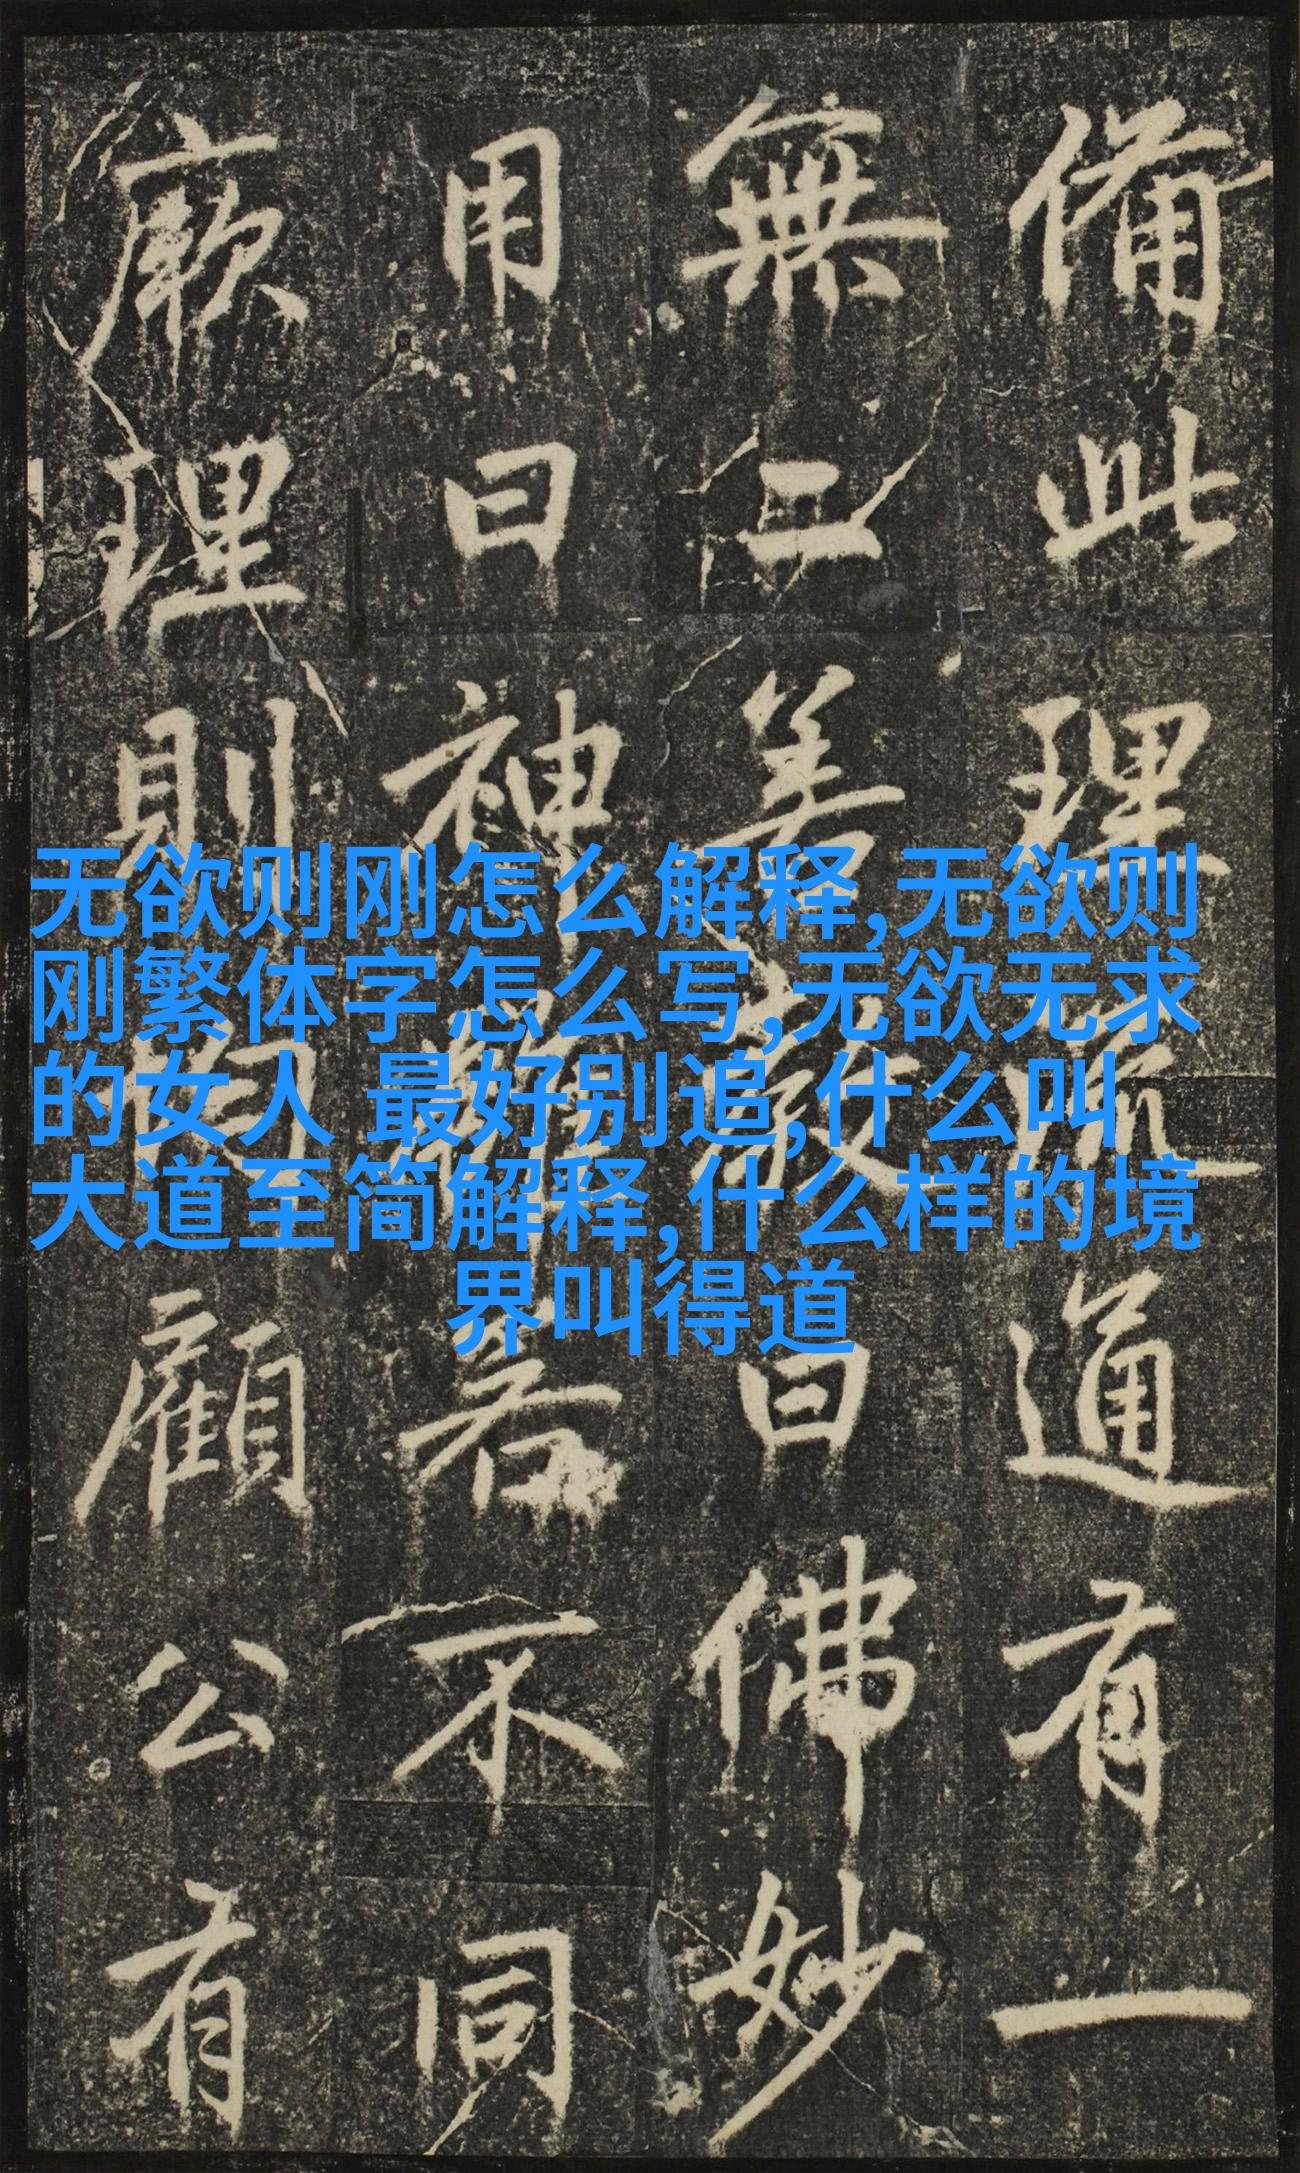 備此理通有一
無二善曰佛妙
用曰神若不同
厥理則顧公有
无欲则刚怎么解释,无欲则
刚繁体字怎么写,无欲无求
的女人 最好别追,什么叫
大道至简解释,什么样的境
界叫得道